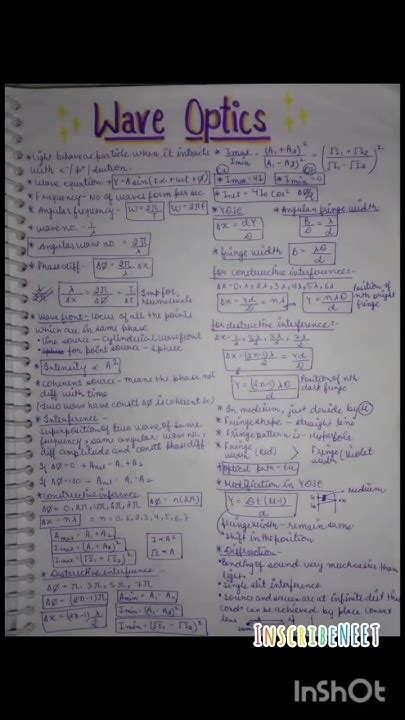 Wave Optics
* light behaves as particle when it interacts
with e⁻/p⁺/
* Wave equation → Y = A sin(kx + ωt + φ)
* Frequency - No of waves form per sec.
* Angular frequency - W = 2π/T W = 2πf
* wave no. - 1/λ
* Angular wave no. = 2π/λ
* Phase diff - Δφ = 2π/λ Δx
λ/Δx = 2π/Δφ = T/Δt Imp for
Numericals
* Wavefront - locus of all the points
which are in same phase
* line source - Cylindrical wavefront
* for point source - Sphere
* Intensity ∝ A²
* coherent source - means the phase not
diff with time
(two wave have constt Δφ is coherent so)
* Interference -
superposition of two wave of same
frequency, same angular wave no,
diff amplitude and constt phase diff
If Δφ = 0 → Anet = A₁ + A₂
If Δφ = 180 → Anet = A₁ - A₂
* Constructive inference Δφ = n(2π)
Δφ = 0, 2π, 4π, 6π, 8π
Δx = nλ ∴ n = 0, 1, 2, 3, 4, 5, 6, 7
Amax = A₁ + A₂
Imax = (A₁ + A₂)²
Imax = (√I₁ + √I₂)²
I ∝ A²
√I ∝ A
* Destructive inference -
Δφ = π, 3π, 5π, 7π
Δφ = (2n-1)π
Δx = (2n-1) λ/2
Amin = A₁ - A₂
Imin = (A₁ - A₂)²
Imin = (√I₁ - √I₂)²
* Imax/Imin = (A₁ + A₂)²/(A₁ - A₂)² = (√I₁ + √I₂/√I₁ - √I₂)²
* Imax = 4I * Imin = 0
* Inet = 4I₀ Cos² Δφ/2
* YDSE
Δx = dY/D
* Angular fringe width
B/D = λ/d
* fringe width B = λD/d
for constructive interferences -
Δx = 0, λ, 2λ, 3λ, 4λ, 5λ, 6λ
Δx = Yd/D = nλ Y = nλD/d
Position of
nth bright
fringe
for destructive interference :-
Δx = λ/2, 3λ/2, 5λ/2
Δx = (2n-1)λ/2 = Yd/D
Y = (2n-1)λD/d
Position of nth
dark fringe
* In medium, just devide by μ
* Fringe shape - straight line
* Fringe pattern is - Hyperbola
* Fringe width (Red) > Fringe width (Violet)
* optical path = tμ
* Modification in YDSE
Y = Dt(μ-1)/d
medium
fringe width - remain same
* shift in the position
* Diffraction -
* Bending of sound very much easier than
light.
* single slit interference
* source and screen are at infinite dist this
condⁿ can be achieved by place convex
lens
INSCRIBENEET
InShOt